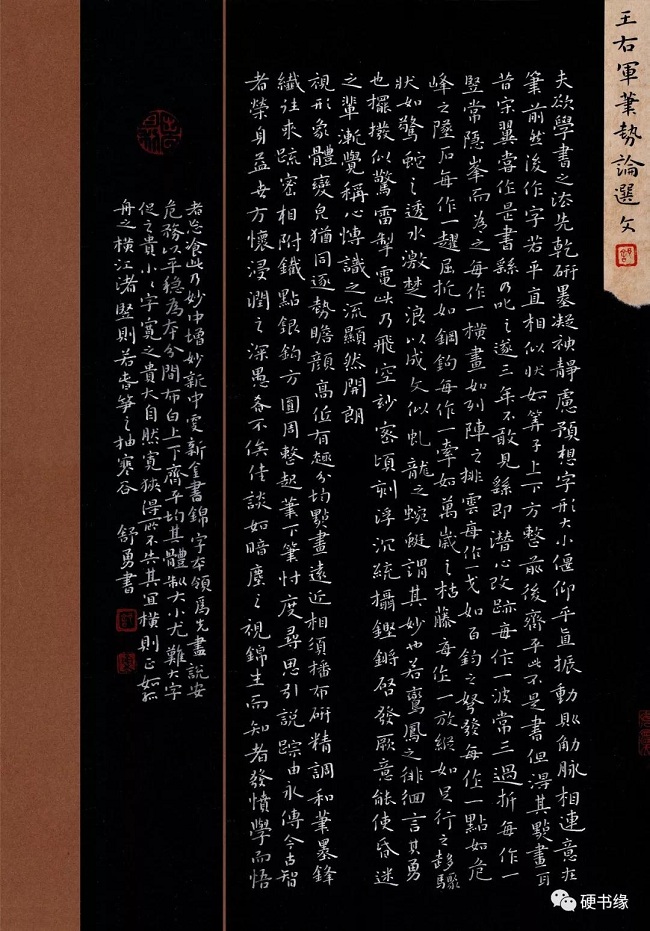 王右軍筆勢論選文
夫欲學書之法先乾研墨凝神靜慮預想字形大小偃仰平直振動則筋脉相連意在
筆前然後作字若平直相似狀如筭子上下方整前後齊平此不是書但得其點畫耳
昔宋翼嘗作是書繇乃叱之遂三年不敢見繇即潛心改跡每作一波常三過折每作一
竪常隱峯而為之每作一橫畫如列陣之排雲每作一戈如百鈞之弩發每作一點如危
峰之墜石每作一趯屈折如鋼鈎每作一牽如萬歲之枯藤每作一放縱如足行之趍驟
狀如驚蛇之透水激楚浪以成文似虬龍之蜿蜒謂其妙也若鸞鳳之徘徊言其勇
也擺撥似驚雷掣電此乃飛空玅密頃刻浮沉統攝鏗鏘啓發厥意能使昏迷
之輩漸覺稱心愽識之流顯然開朗
視形象體變皃猶同逐勢瞻顏高低有趣分均點畫遠近相須播布研精調和筆墨鋒
纖往來疏密相附鐵點銀鈎方圓周整起筆下筆忖度尋思引說蹤由永傳今古智
者榮身益世方懷浸潤之深愚者不俟佳談如暗塵之視錦生而知者發憤學而悟
者忘飡此乃妙中增妙新中更新金書錦字本領爲先盡說安
危務以平穩為本分間布白上下齊平均其體製大小尤難大字
促之貴小小字寬之貴大自然寬狹得所不失其宜橫則正如孤
舟之橫江渚竪則若春笋之抽寒谷 舒勇書
硬书缘